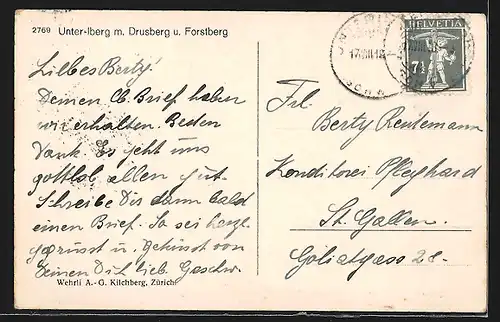 2769 Unter-Iberg m. Drusberg u. Forstberg
HELVETIA
7½
17.VIII.18
Liebes Berty!
Deinen lb. Brief haben
wir erhalten. Besten
Dank. Es geht uns
gottlob allen gut.
Schreibe Dir dann bald
einen Brief. So sei herzl.
gegrüsst u. geküsst von
Deinen Dich lieb. Geschw.
Frl.
Berty Reutemann
Konditorei Pfleghard
St. Gallen.
Goliatgass 28.
Wehrli A.-G. Kilchberg, Zürich